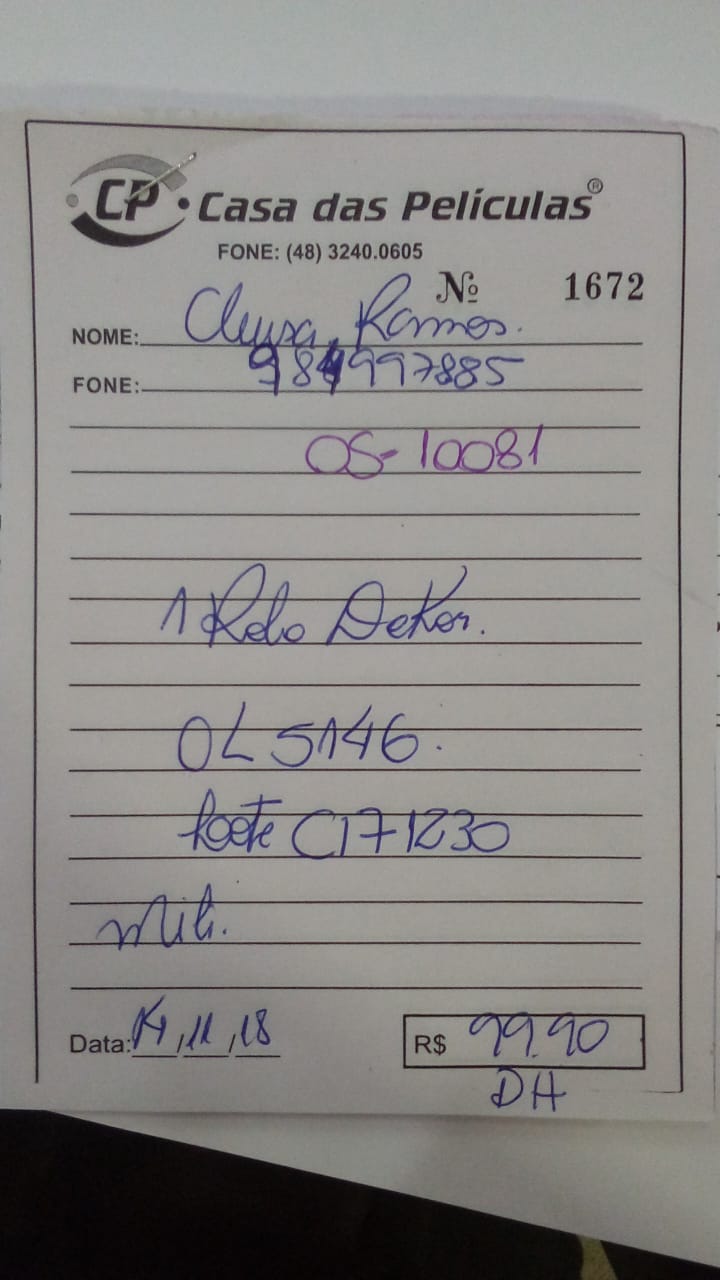 CP Casa das Películas®
FONE: (48) 3240.0605
Nº 1672
NOME: Cleusa Ramos.
FONE: 984997885
OS-10081
1 Rolo DeKor.
OL 5146.
C171230
Data: 14/11/18
R$ 99.90
DH